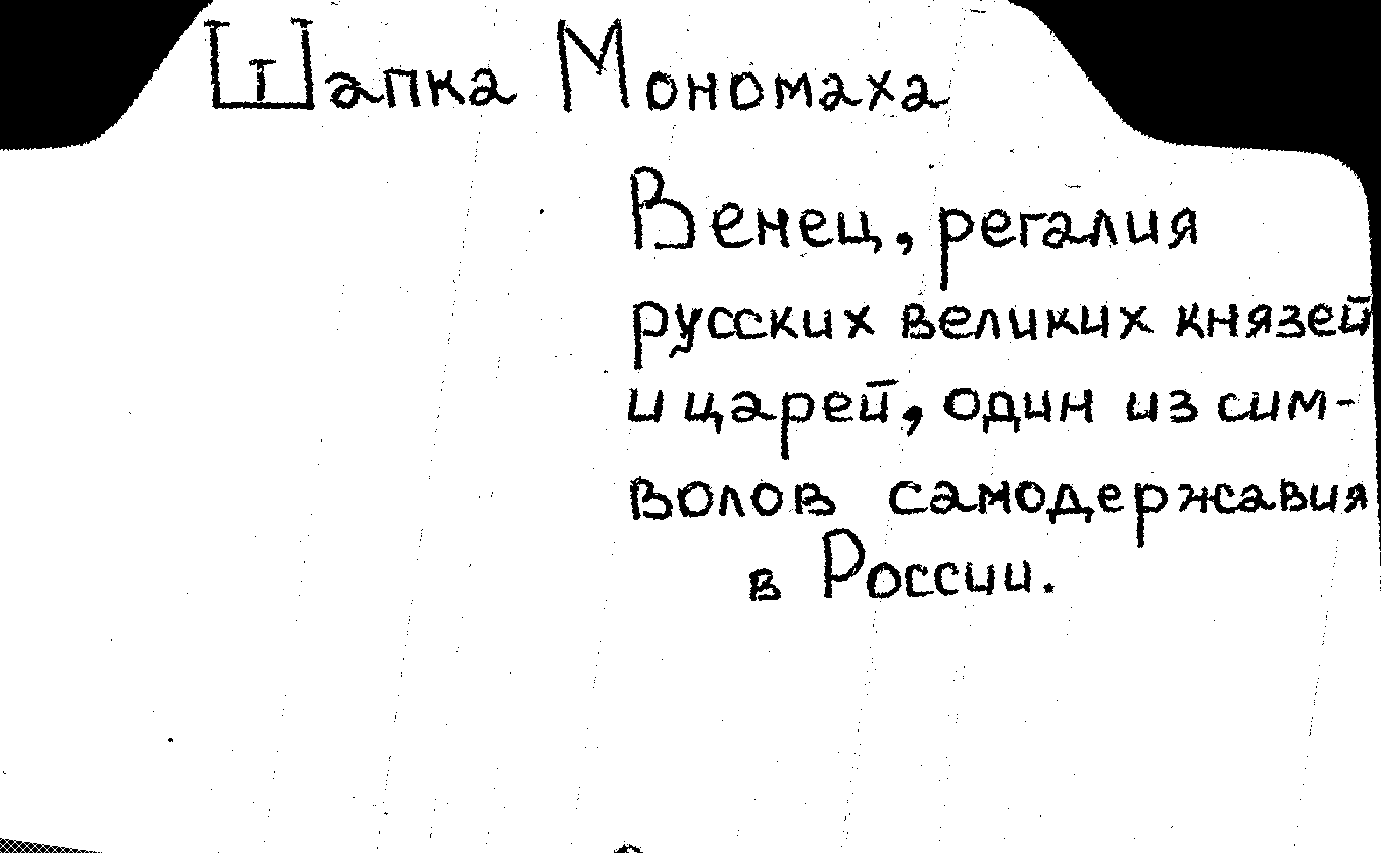 Шапка Мономаха
Венец, регалия
русских великих князей
и царей, один из сим-
волов самодержавия
в России.